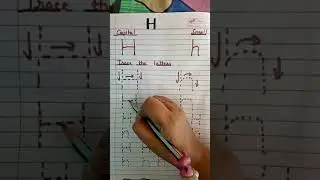 H
Capital Small
H h
Trace the letters